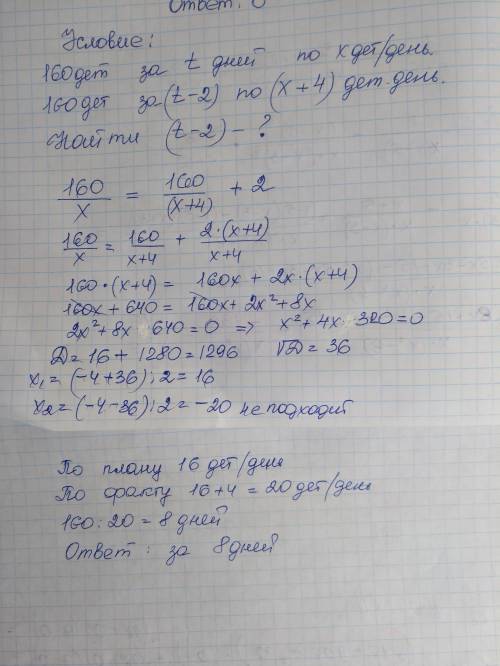 Ответ: 0
Условие:
160 дет за t дней по x дет/день.
160 дет за (t-2) по (x+4) дет. день.
Найти (t-2) - ?
160/x = 160/(x+4) + 2
160/x = 160/x+4 + 2·(x+4)/x+4
160·(x+4) = 160x + 2x·(x+4)
160x + 640 = 160x + 2x² + 8x
2x² + 8x 640 = 0 => x² + 4x 320 = 0
D = 16 + 1280 = 1296 √D = 36
x₁ = (-4+36):2 = 16
x₂ = (-4-36):2 = -20 не подходит
По плану 16 дет/день
По факту 16+4 = 20 дет/день
160:20 = 8 дней
Ответ: за 8 дней